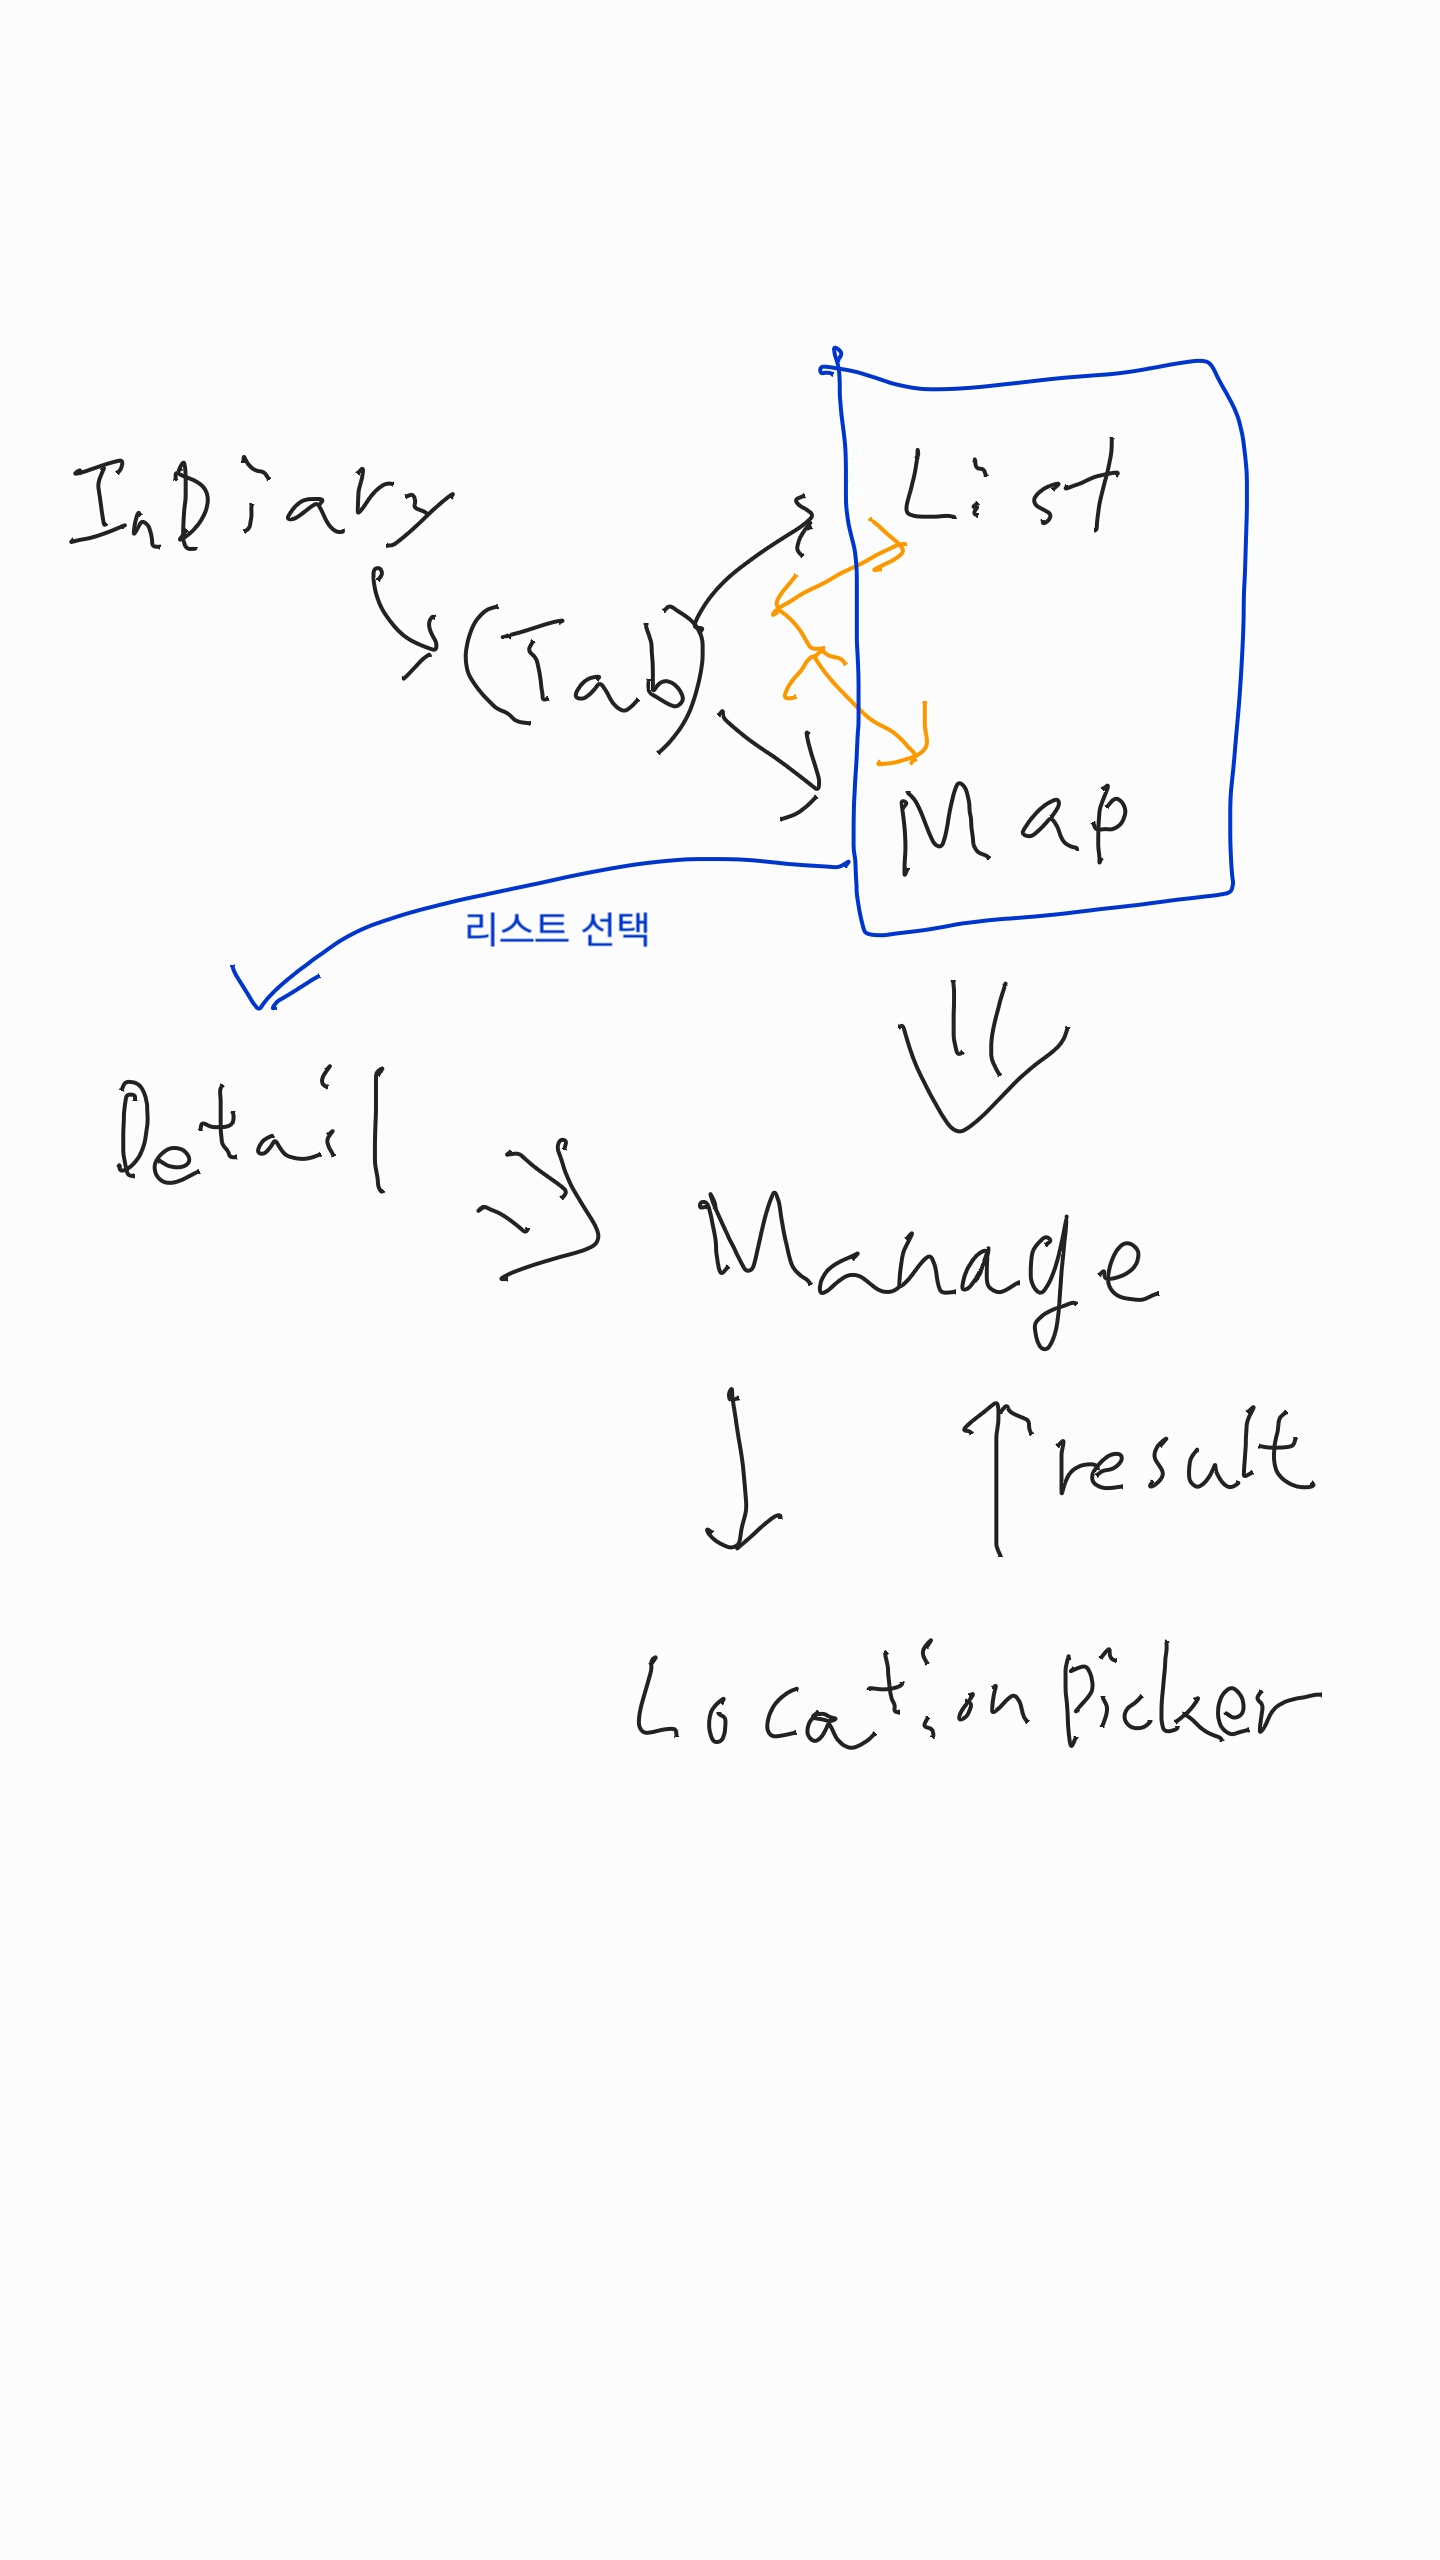 List
InDiary
(Tab)
Map
리스트 선택
Detail
Manage
result
LocationPicker